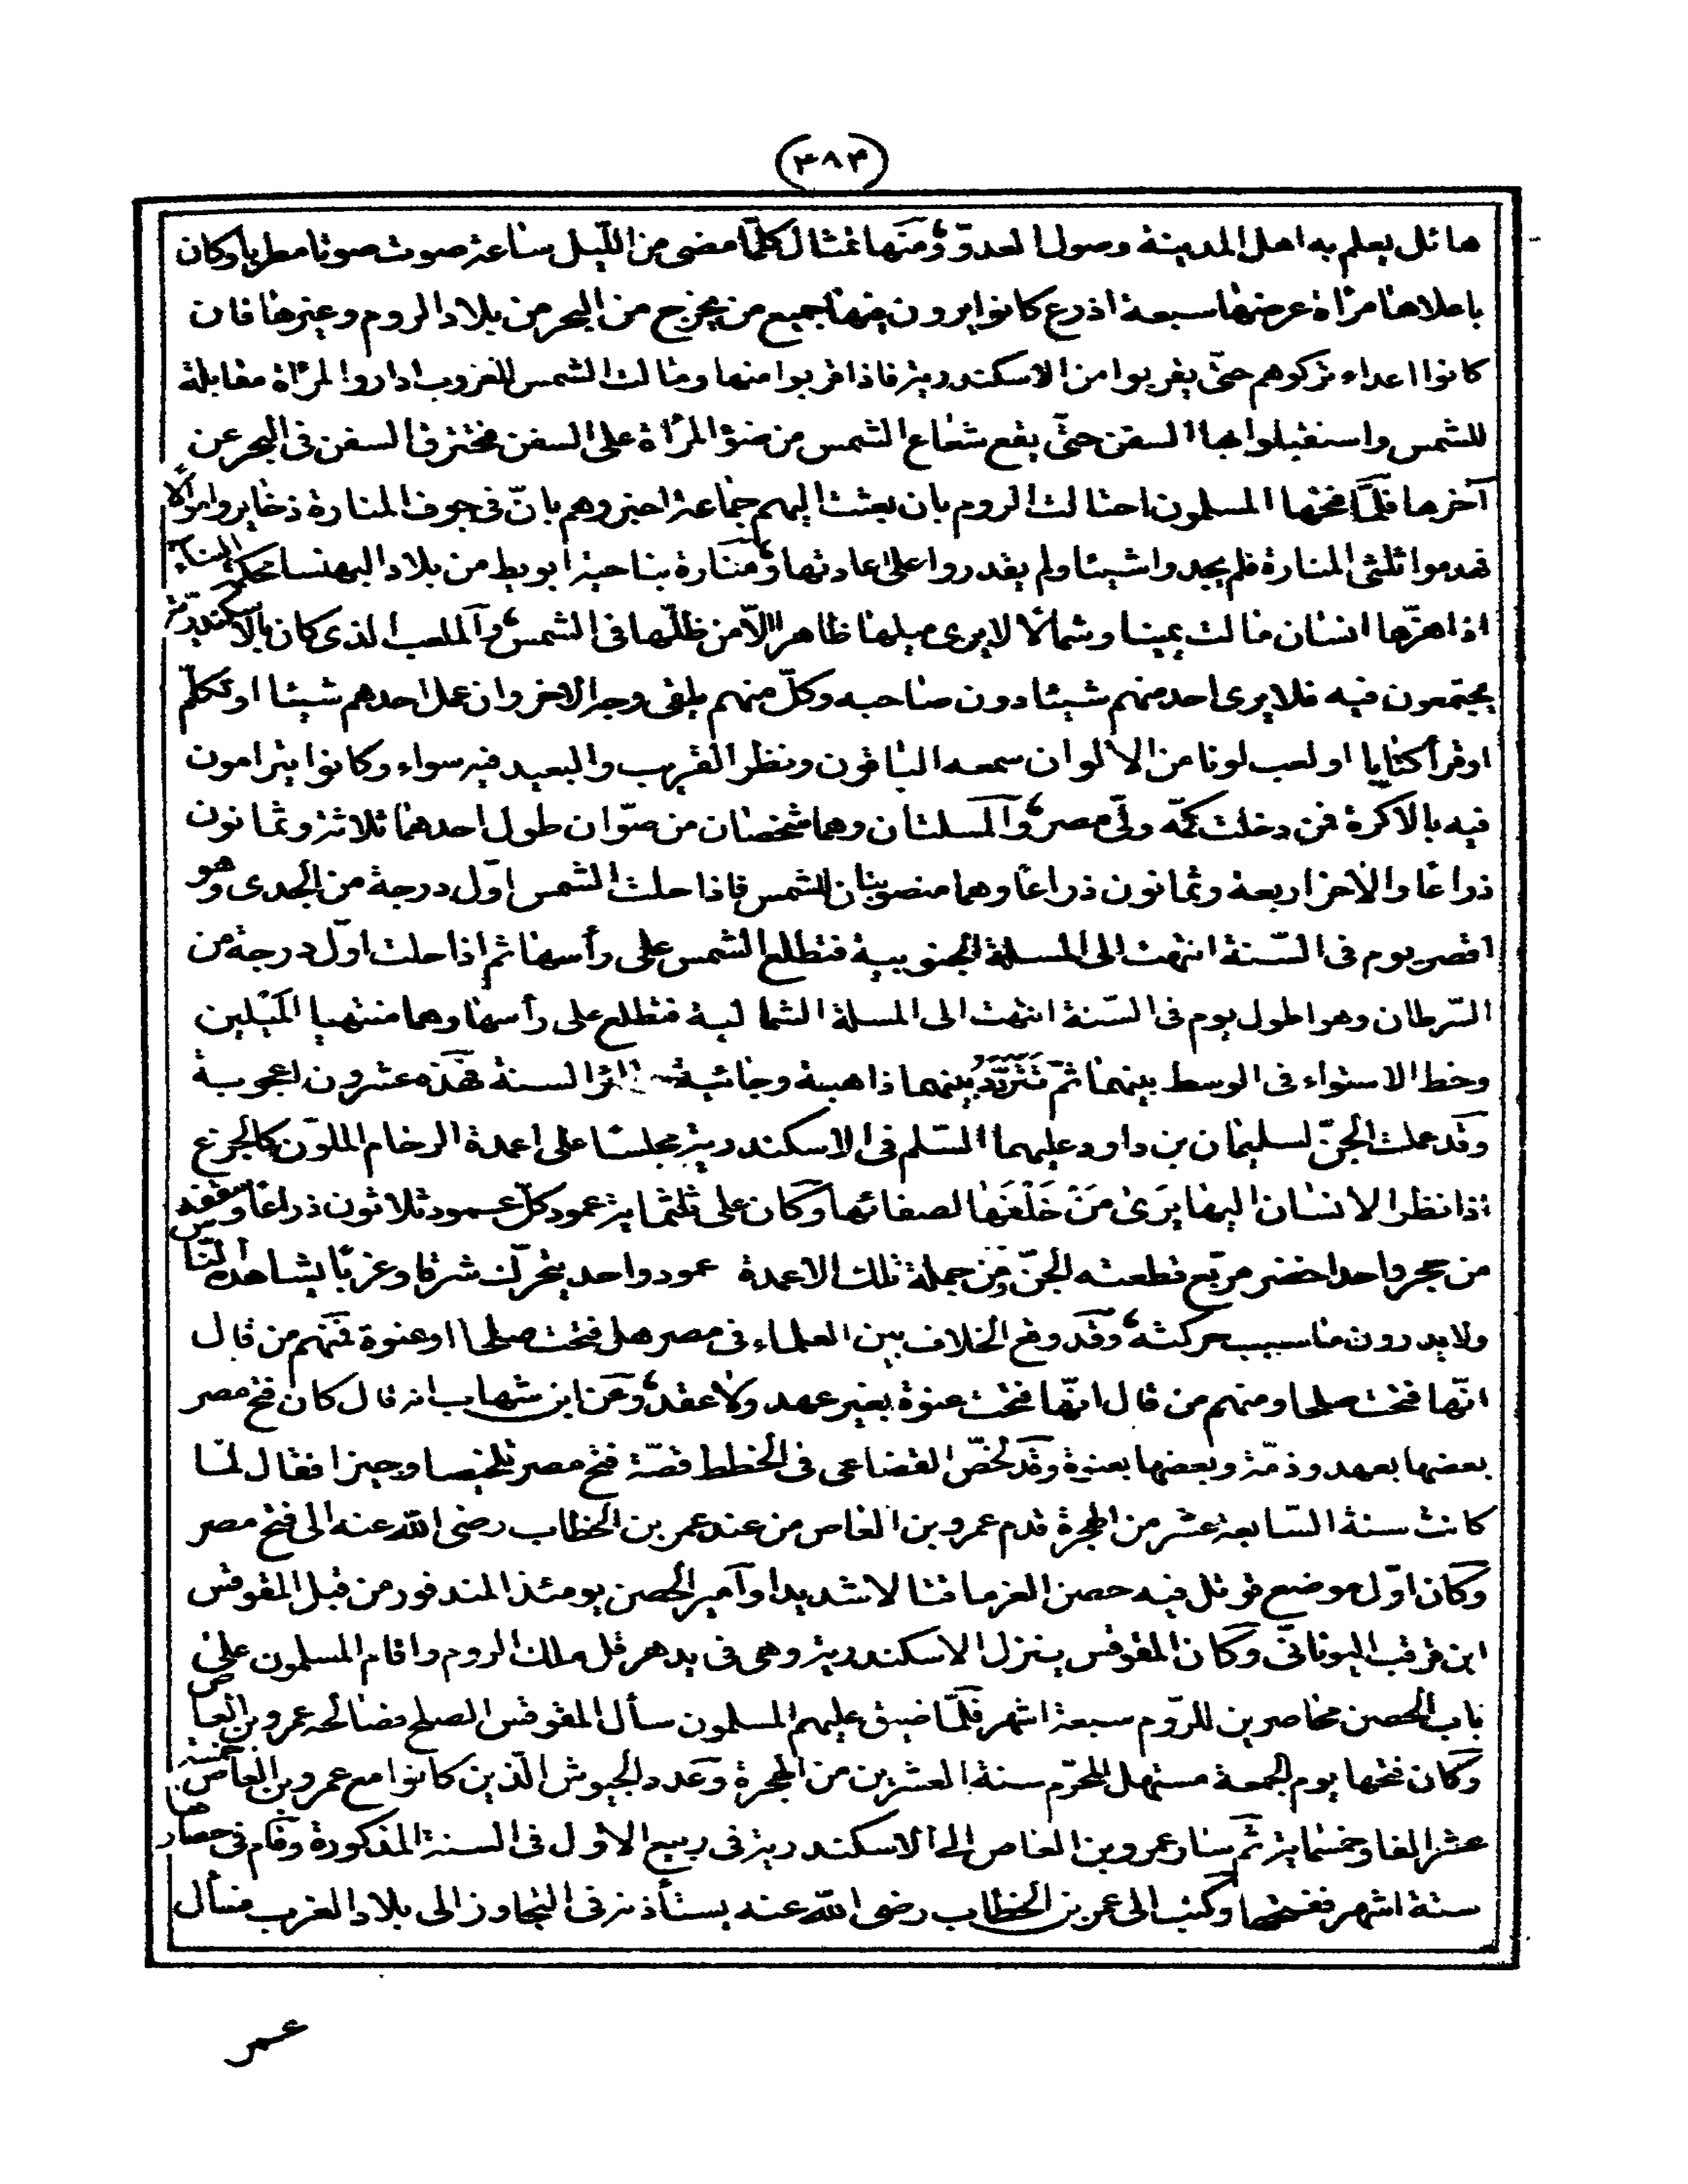 (٣٨٤)
هائل يعلم به اهل المدينة وصول العدوّ ومنها تمثال كلّما مضى من اللّيل ساعة صوت صوتا مطربا وكان
باعلاها مرآة عرضها سبعة اذرع كانوا يرون فيها جميع من يخرج من البحر من بلاد الروم وغيرها فان
كانوا اعداء تركوهم حتّى يقربوا من الاسكندرية فاذا قربوا منها ومالت الشمس للغروب اداروا المرآة مقابلة
للشمس واستقبلوا بها السفن حتّى يقع شعاع الشمس من ضوء المرآة على السفن فتحترق السفن فى البحر عن
آخرها فلمّا فتحها المسلمون احتالت الروم بان بعثت اليهم جماعة اخبروهم بانّ فى جوف المنارة ذخاير واموالا
فهدموا ثلثى المنارة فلم يجدوا شيئا ولم يقدروا على اعادتها ومنارة بناحية ابويط من بلاد البهنسا محكمة البناء
اذا هزّها انسان مالت يمينا وشمالا لا يرى ميلها ظاهرا الّا من ظلّها فى الشمس والملعب الذى كان بالاسكندرية
يجتمعون فيه فلا يرى احد منهم شيئا دون صاحبه وكلّ منهم يلقى وجه الاخر وان عمل احدهم شيئا او تكلّم
او قرأ كتابا او لعب لونا من الالوان سمعه الباقون ونظر القريب والبعيد فيه سواء وكانوا يترامون
فيه بالاكرة فمن دخلت كمّه ولّى مصر والمسلتان وهما شخصان من صوّان طول احدهما ثلاثة وثمانون
ذراعا والاخر اربعة وثمانون ذراعا وهما منصوبتان للشمس فاذا حلت الشمس اوّل درجة من الجدى وهو
اقصر يوم فى السّنة انتهت الى المسلة الجنوبية فتطلع الشمس على رأسها ثم اذا حلت اوّل درجة من
السّرطان وهو اطول يوم فى السّنة انتهت الى المسلة الشمالية فتطلع على رأسها وهما منتهيا الميلين
وخط الاستواء فى الوسط بينهما ثمّ تتردّد بينهما ذاهبة وجائية السنة فهذه عشرون اعجوبة
وقد عملت الجنّ لسليمان بن داود عليهما السّلم فى الاسكندرية مجلسا على اعمدة الرخام الملوّن كالجزع
اذا نظر الانسان اليها يرى من خلفها لصفائها وكان على ثلثماية عمود كلّ عمود ثلاثون ذراعا وسقفه
من حجر واحد اخضر مربّع قطعته الجنّ ومن جملة تلك الاعمدة عمود واحد يتحرّك شرقا وغربا يشاهده النّاس
ولا يدرون ما سبب حركته وقد وقع الخلاف بين العلماء فى مصر هل فتحت صلحا او عنوة فمنهم من قال
انّها فتحت صلحا ومنهم من قال انّها فتحت عنوة بغير عهد ولا عقد وعن ابن شهاب انه قال كان فتح مصر
بعضها بعهد وذمّة وبعضها بعنوة وقد لخّص القضاعى فى الخطط قصّة فتح مصر تلخيصا وجيزا فقال لمّا
كانت سنة السّابعة عشر من الهجرة قدم عمرو بن العاص من عند عمر بن الخطاب رضى الله عنه الى فتح مصر
وكان اوّل موضع قوتل فيه حصن الفرما قتالا شديدا وامير الحصن يومئذ المندفور من قبل المقوقس
ابن قرقب اليونانى وكان المقوقس ينزل الاسكندرية وهى فى يد هرقل ملك الروم واقام المسلمون على
باب الحصن محاصرين للرّوم سبعة اشهر فلمّا ضيق عليهم المسلمون سأل المقوقس الصلح فصالحه عمرو بن العاص
وكان فتحها يوم الجمعة مستهل المحرّم سنة العشرين من الهجرة وعدد الجيوش الّذين كانوا مع عمرو بن العاص خمسة
عشر الفا وخمسماية ثمّ سار عمرو بن العاص الى الاسكندرية فى ربيع الاول فى السنة المذكورة وقام فى حصارها
ستة اشهر ففتحها وكتب الى عمر بن الخطاب رضى الله عنه يستأذنه فى التجاوز الى بلاد الغرب فسأل
عمر